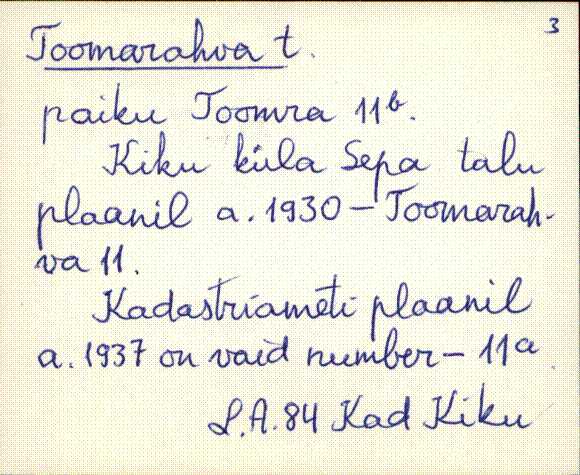 3
Toomarahva t.
paiku Toomra 11b.
Kiku küla Sepa talu
plaanil a. 1930 – Toomarah-
va 11.
Kadastriameti plaanil
a. 1937 on vaid number – 11a
L.A. 84 Kad Kiku